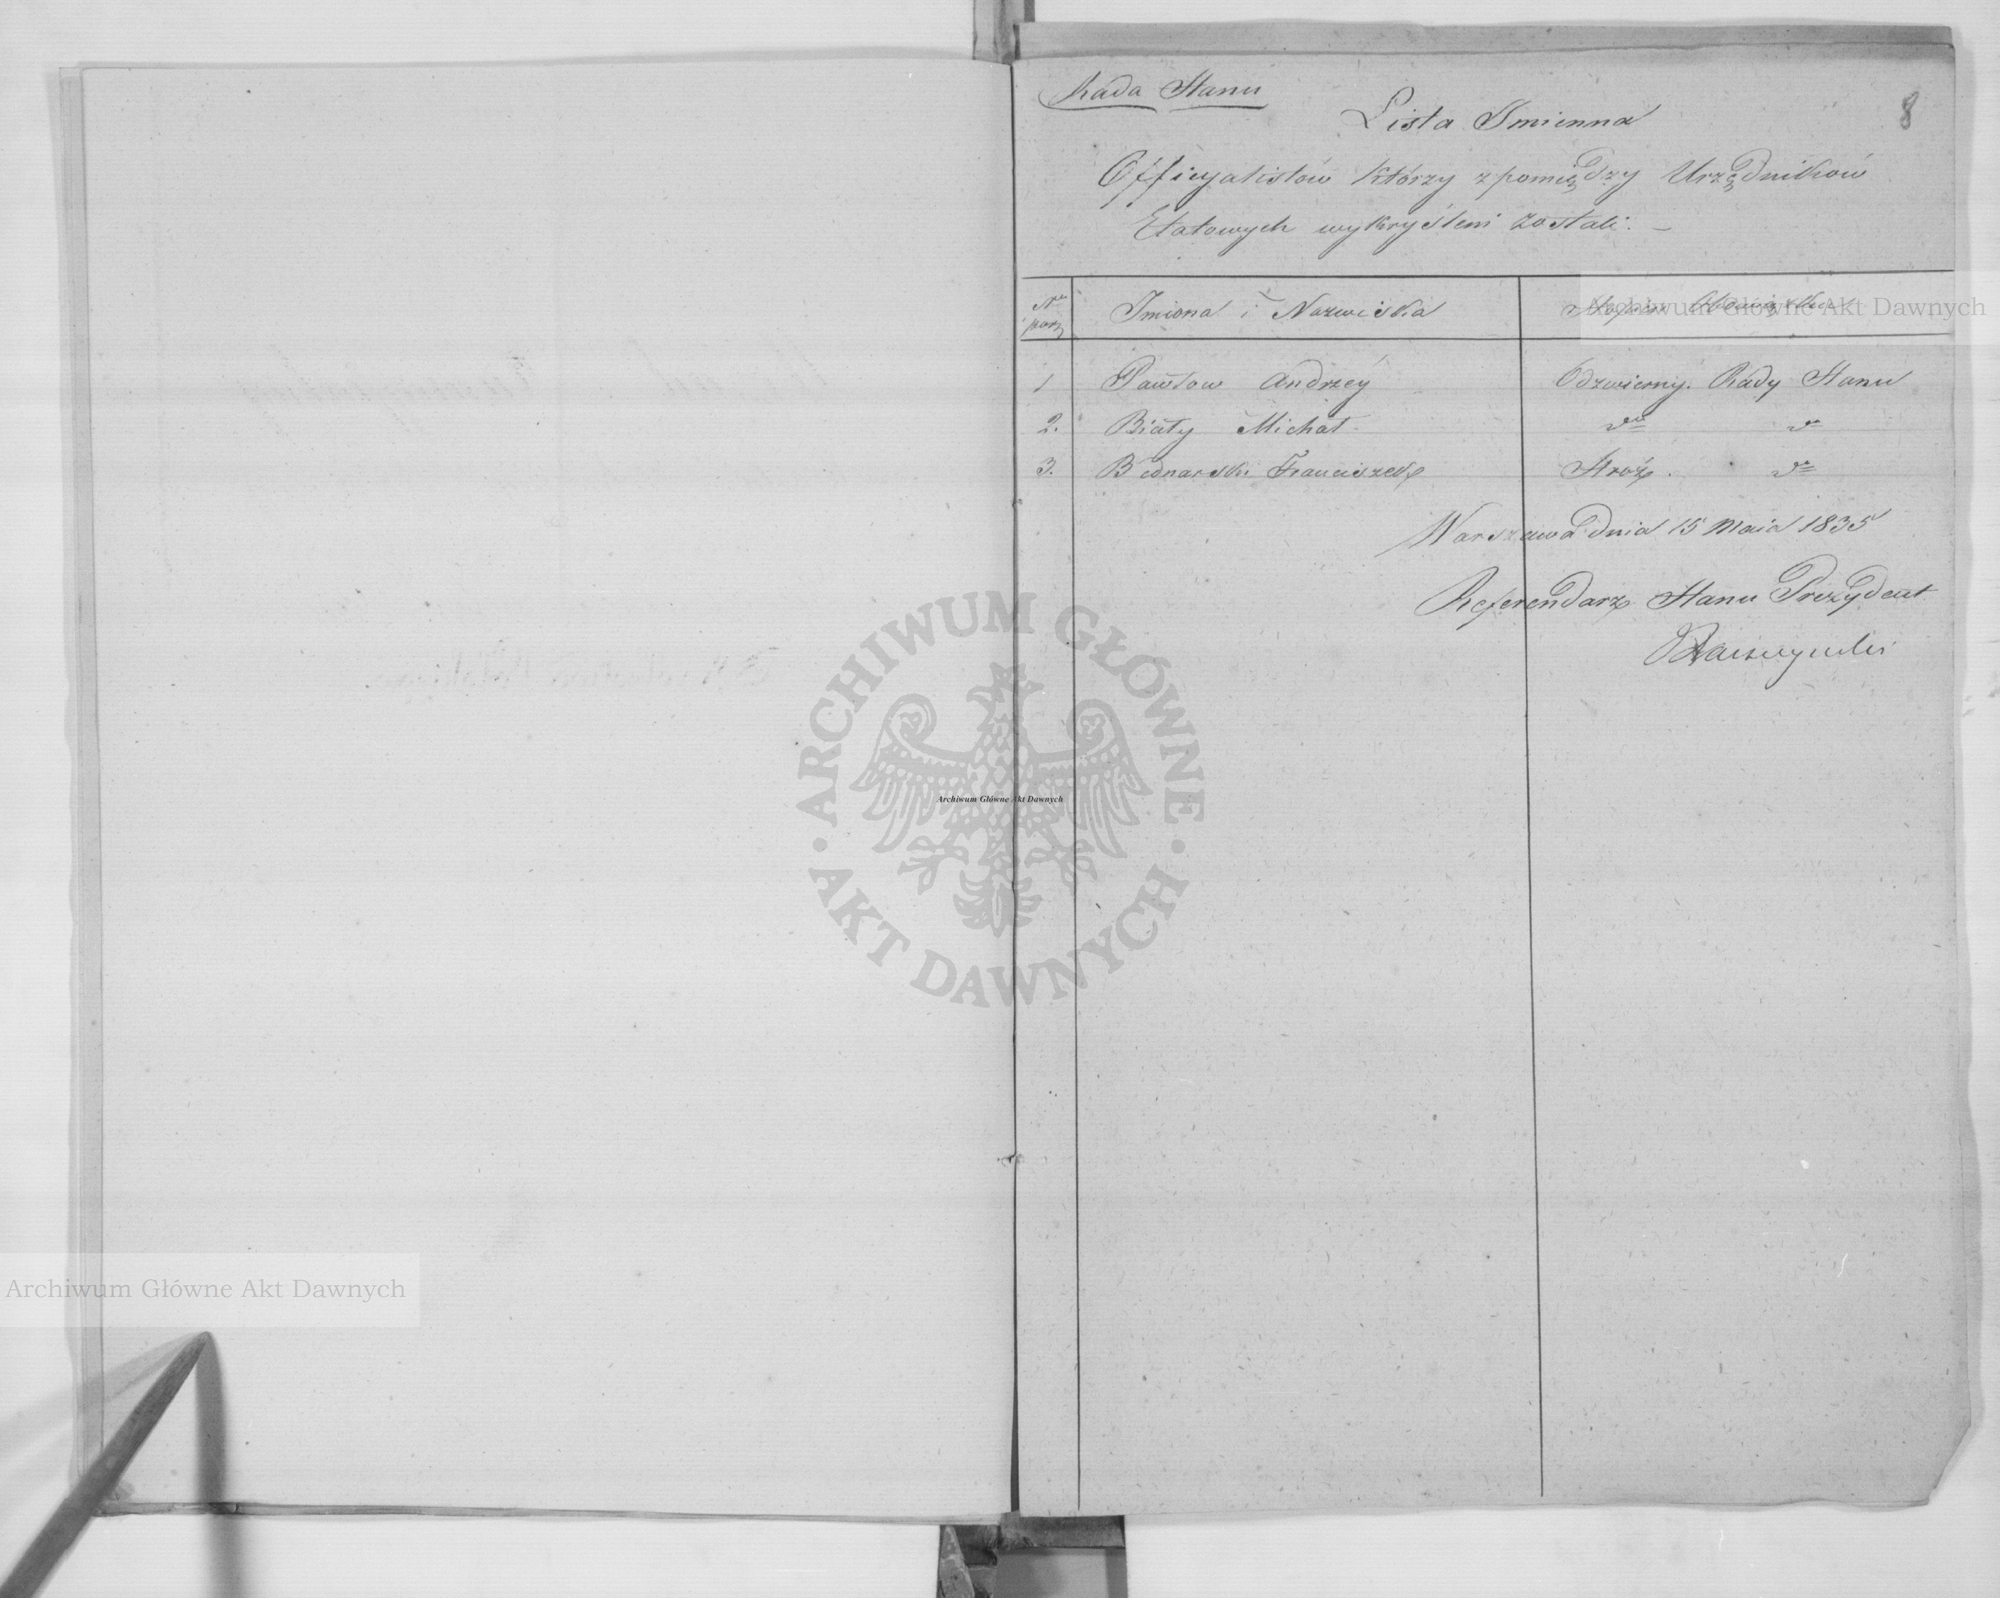 Rada Stanu
8
Lista Imienna
Officyalistów którzy z pomiędzy Urzędników
Etatowych wykryśleni zostali. —
Nro porz
Imiona i Nazwiska
Stopień Obowiązków
1 Pawłow Andrzéy Odzwierny Rady Stanu
2. Biały Michał do do
3. Bednarski Franciszek Stróż. do
Warszawa dnia 15 Maia 1835
Referendarz Stanu Prezydent
Archiwum Główne Akt Dawnych
ARCHIWUM GŁÓWNE AKT DAWNYCH
Archiwum Główne Akt Dawnych
Archiwum Główne Akt Dawnych